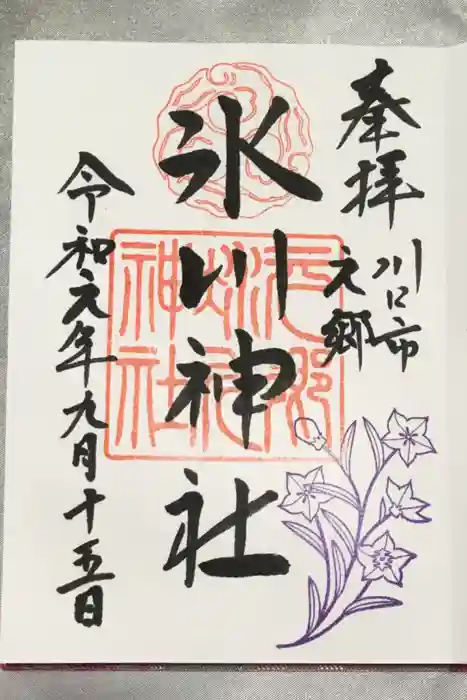 奉拝
川口市
元郷
氷川神社
元郷
氷川
神社
令和元年九月十五日